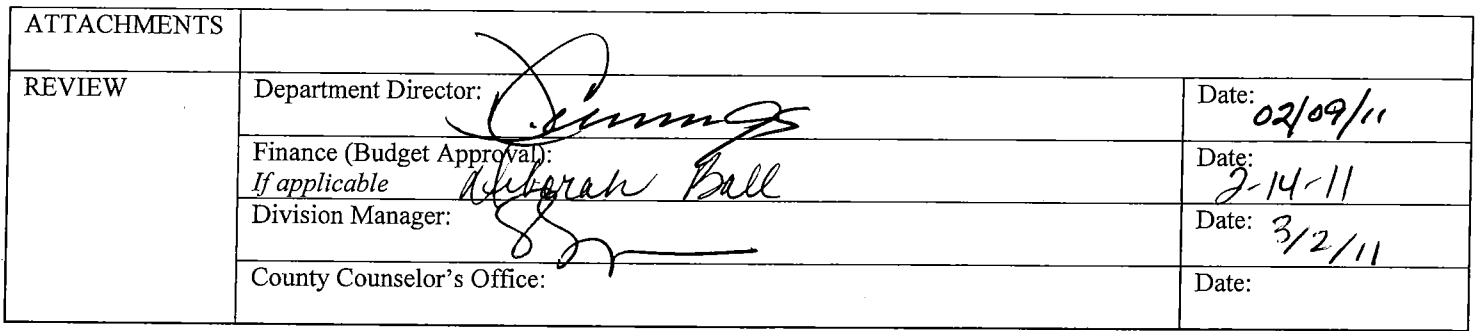 ATTACHMENTS
REVIEW
Department Director:
Date: 02/09/11
Finance (Budget Approval):
If applicable Deborah Ball
Date: 2-14-11
Division Manager:
Date: 3/2/11
County Counselor's Office:
Date: